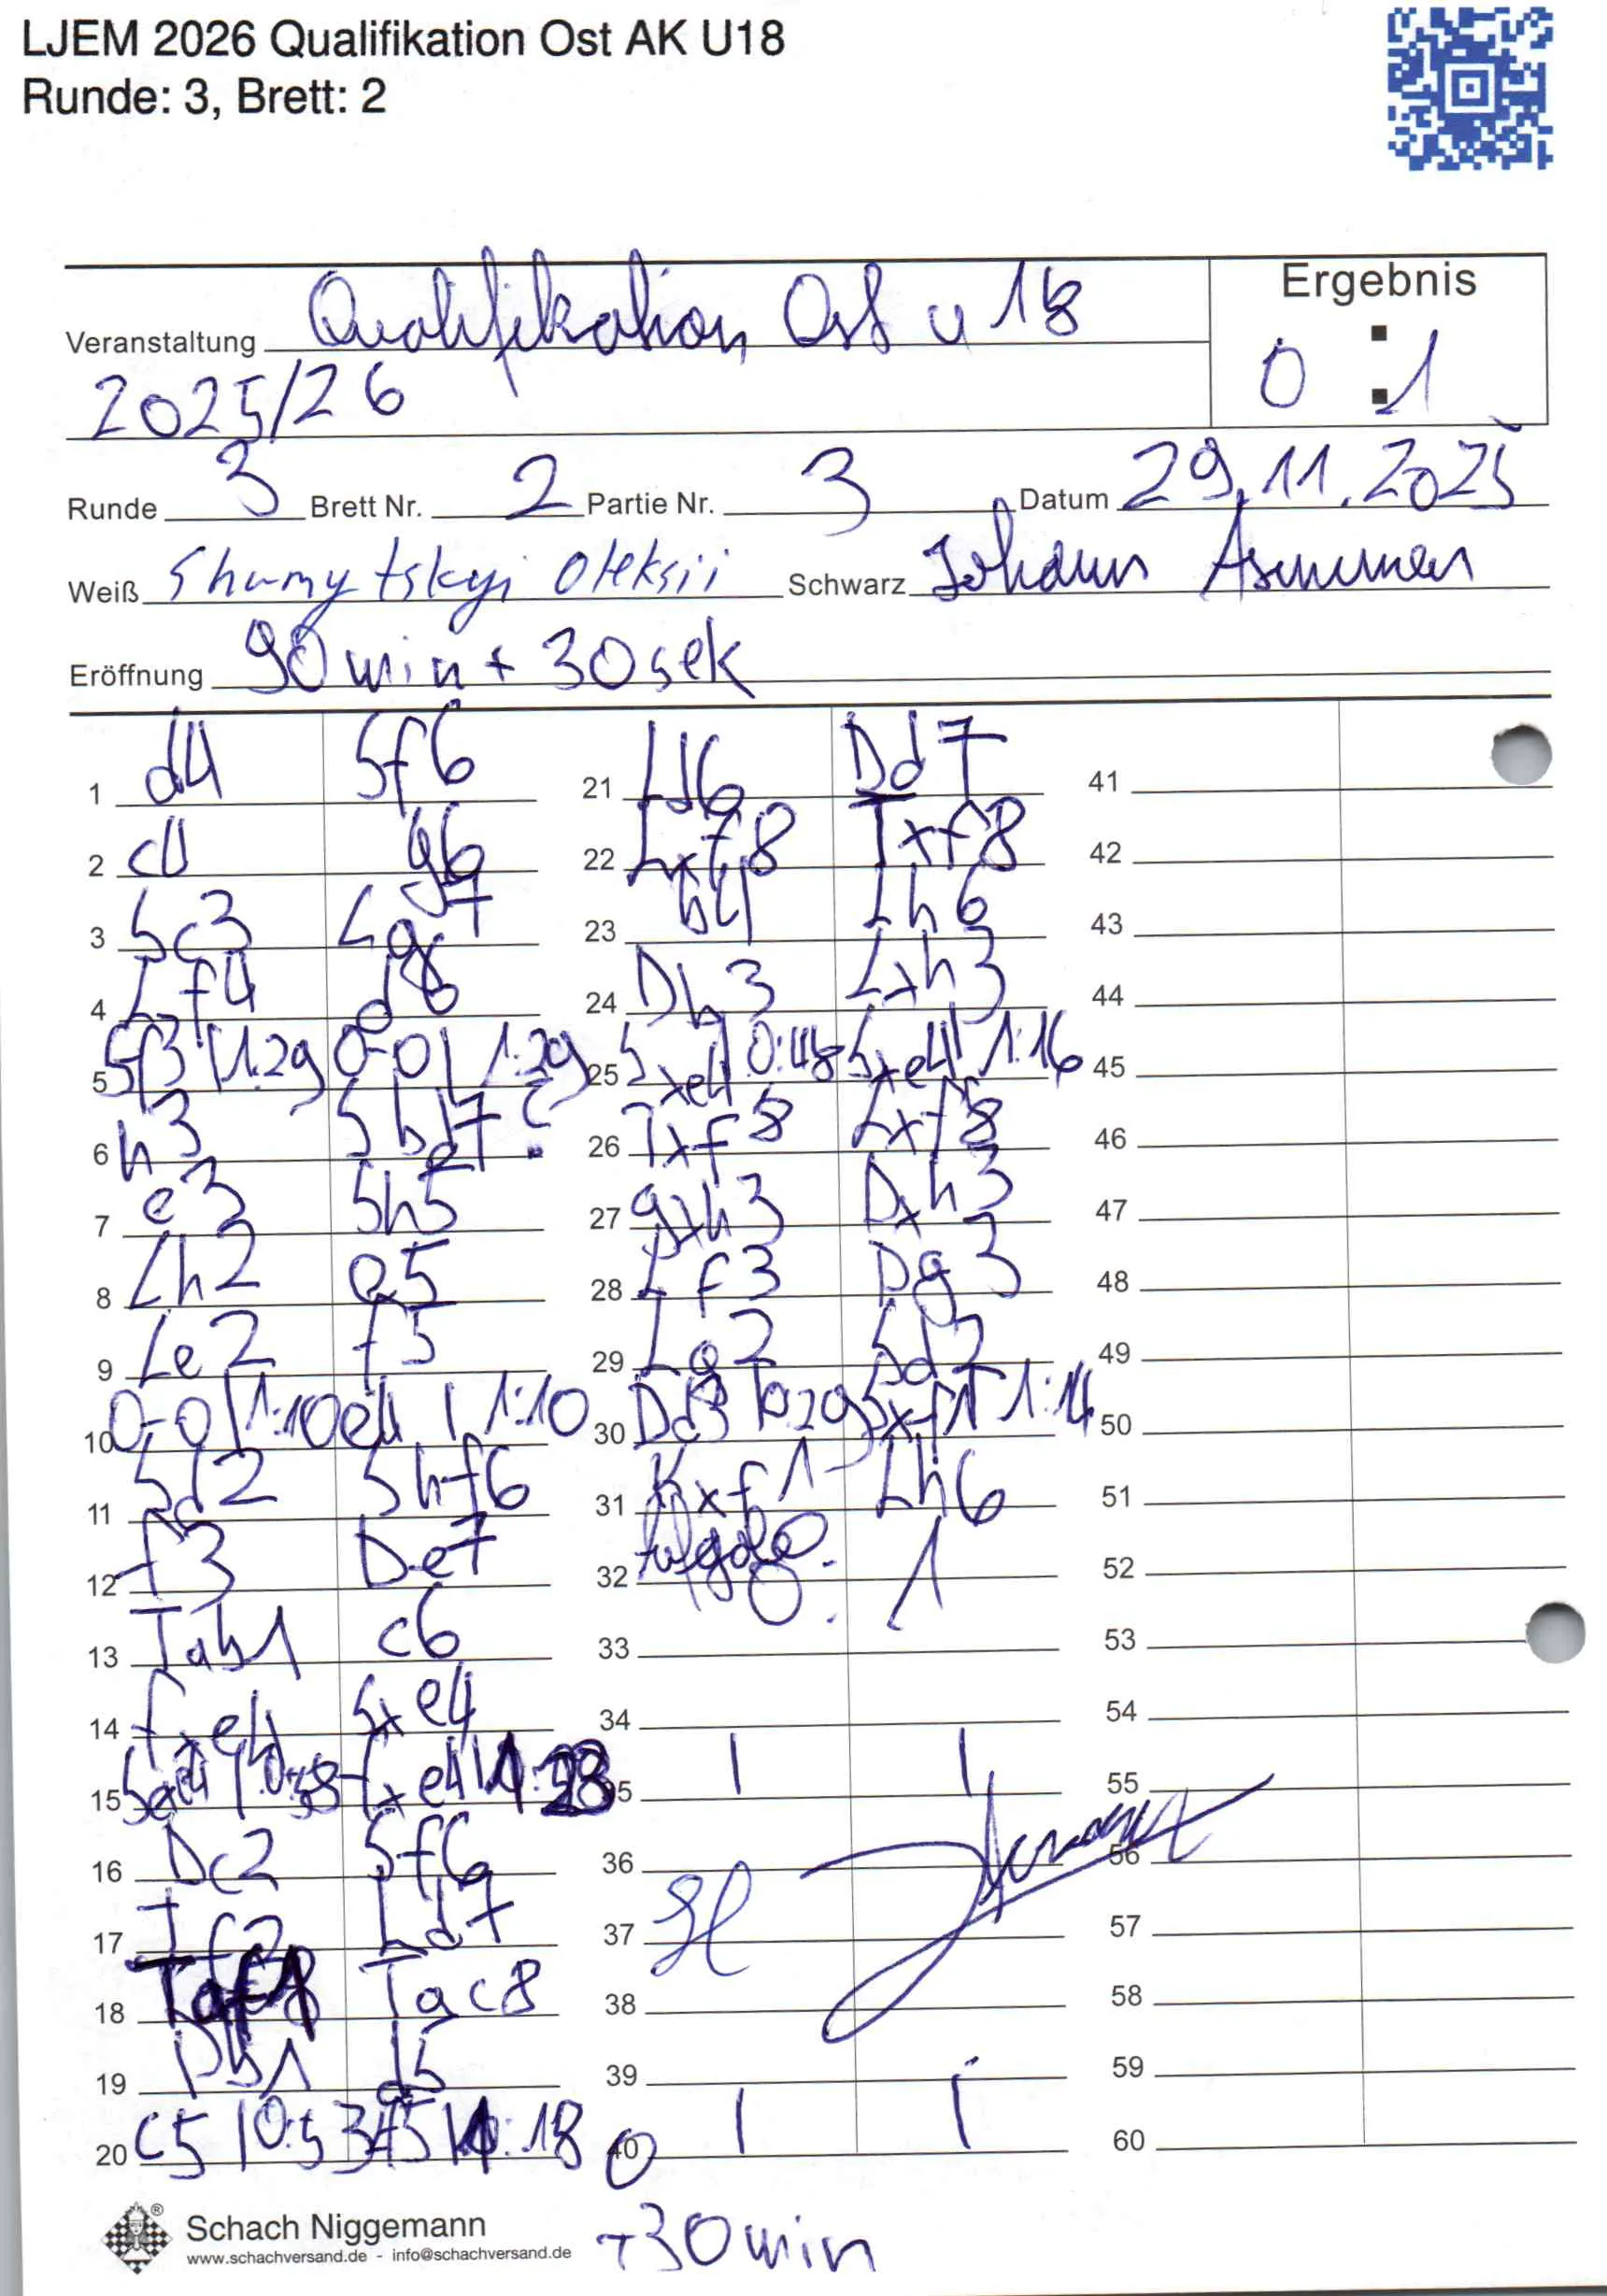 LJEM 2026 Qualifikation Ost AK U18
Runde: 3, Brett: 2
Veranstaltung Qualifikation Ost u 18
2025/26
Ergebnis
0 : 1
Runde 3 Brett Nr. 2 Partie Nr. 3 Datum 29.11.2025
Weiß Shumytskyi Oleksii Schwarz Johann
Eröffnung 90min + 30sek
1 d4 Sf6
2 c4 g6
3 Sc3 Lg7
4 Lf4 d6
5 Sf3 | 1:29 0-0 | 1:29
6 h3 Sbd7 ?
7 e3 Sh5
8 Lh2 e5
9 Le2 f5
10 0-0 | 1:10 e4 | 1:10
11 Sd2 Shf6
12 f3 De7
13 Tab1 c6
14 fxe4 Sxe4
15 0:58 fxe4
16 Dc2 Sf6
17 Tf2 Ld7
18 Taf1 Tac8
19 Db1 d5
20 c5 | 0:53 :18
21 Ld6 Dd7
22 Lxf8 Txf8
23 b4 Lh6
24 Dh3 Lxh3
25 Sxe4 | 0:48 Sxe4 | 1:16
26 Txf8 Lxf8
27 gxh3 Dxh3
28 Lf3 Dg3
29 Lg2 Sd2
30 Dd3 | 0:29 Sxf1 1:14
31 Kxf1 Lh6
32 Aufgabe. 0 : 1
33
34
35
36
37
38
39
40
+30min
41
42
43
44
45
46
47
48
49
50
51
52
53
54
55
56
57
58
59
60
Schach Niggemann
www.schachversand.de - info@schachversand.de